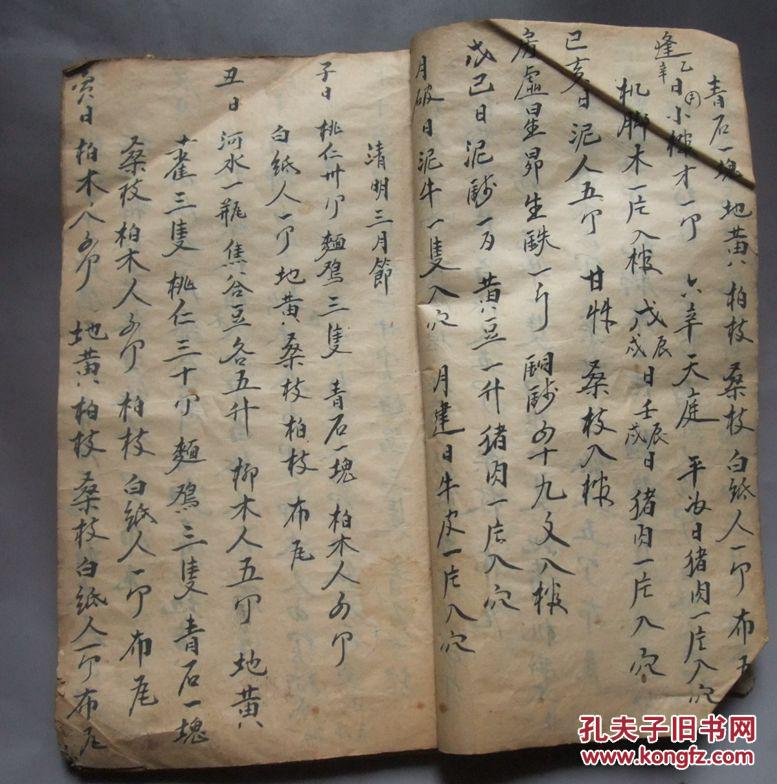 青石一塊 地黄 柏枝 桑枝 白紙人一个 布
逢乙辛日用小棺才一个 六辛天庭 平收日猪肉一片入穴
机脚木一片入棺 戊辰戊戌日壬辰壬戌日猪肉一片入穴
已亥日泥人五个 甘草 桑枝入棺
房虚星昴生鉄一斤 銅錢四十九文入棺
戊己日泥錢一万 黄豆一升 猪肉一片入穴
月破日泥牛一隻入穴 月建日牛皮一片入穴
清明三月節
子日 桃仁卅个 麵鷄三隻 青石一塊 柏木人四个
白紙人一个 地黄 桑枝 柏枝 布尾
丑日 河水一瓶 焦谷豆各五升 柳木人五个 地黄
雀三隻 桃仁三十个 麵鷄三隻 青石一塊
桑枝 柏木人四个 柏枝 白紙人一个 布尾
寅日 柏木人四个 地黄 柏枝 桑枝 白紙人一个 布尾
孔夫子旧书网
KONGFZ.COM